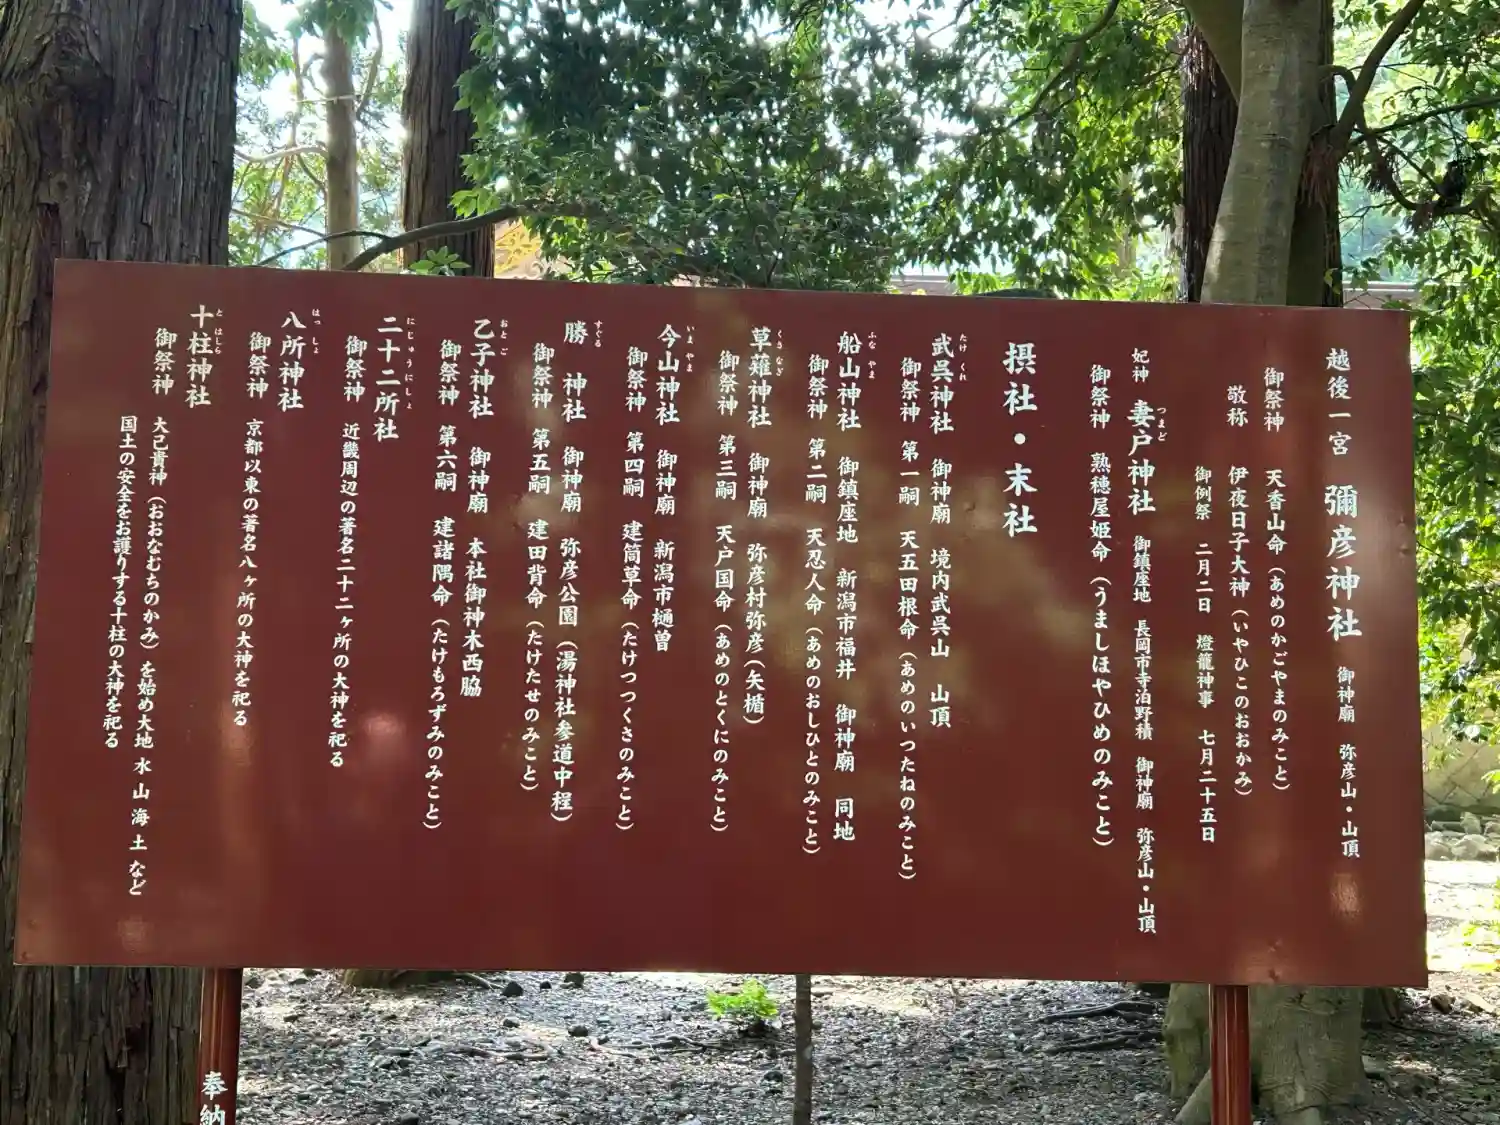 越後一宮 彌彦神社 御神廟 弥彦山・山頂
御祭神 天香山命（あめのかごやまのみこと）
敬称 伊夜日子大神（いやひこのおおかみ）
御例祭 二月二日 燈籠神事 七月二十五日
妃神 妻戸神社 御鎮座地 長岡市寺泊野積 御神廟 弥彦山・山頂
つまど
御祭神 熟穂屋姫命（うましほやひめのみこと）
摂社・末社
武呉神社 御神廟 境内武呉山 山頂
たけくれ
御祭神 第一嗣 天五田根命（あめのいつたねのみこと）
船山神社 御鎮座地 新潟市福井 御神廟 同地
ふなやま
御祭神 第二嗣 天忍人命（あめのおしひとのみこと）
草薙神社 御神廟 弥彦村弥彦（矢楯）
くさなぎ
御祭神 第三嗣 天戸国命（あめのとくにのみこと）
今山神社 御神廟 新潟市樋曽
いまやま
御祭神 第四嗣 建筒草命（たけつつくさのみこと）
勝 神社 御神廟 弥彦公園（湯神社参道中程）
すぐる
御祭神 第五嗣 建田背命（たけたせのみこと）
乙子神社 御神廟 本社御神木西脇
おとご
御祭神 第六嗣 建諸隅命（たけもろずみのみこと）
二十二所社
にじゅうにしょ
御祭神 近畿周辺の著名二十二ヶ所の大神を祀る
八所神社
はっしょ
御祭神 京都以東の著名八ヶ所の大神を祀る
十柱神社
とはしら
御祭神 大己貴神（おおなむちのかみ）を始め大地 水 山 海 土 など
国土の安全をお護りする十柱の大神を祀る
奉納